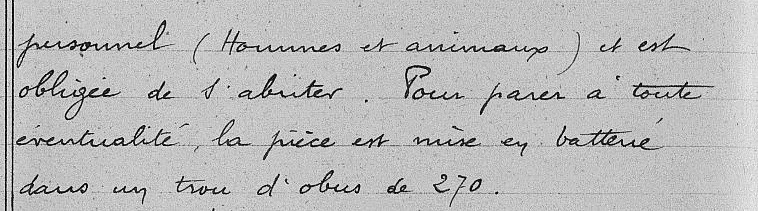 personnel (Hommes et animaux) et est
obligée de s'abriter. Pour parer à toute
éventualité, la pièce est mise en batterie
dans un trou d'obus de 270.